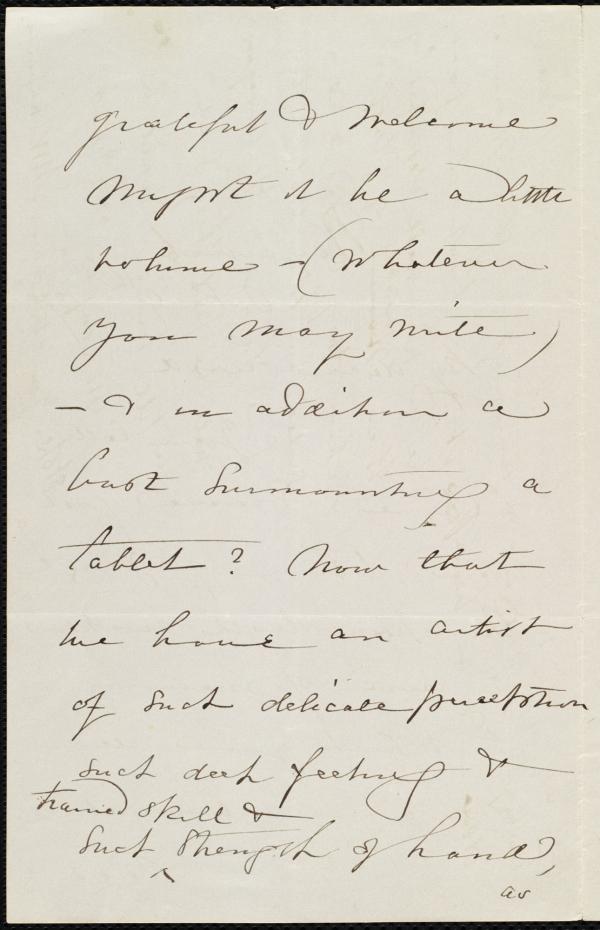 grateful & welcome
Might it be a little
volume – (whatever
you may write)
– & in addition a
bust surmounting a
tablet? Now that
we have an artist
of such delicate perception
such deep feeling &
trained skill &
such ^ strength of hand,
as